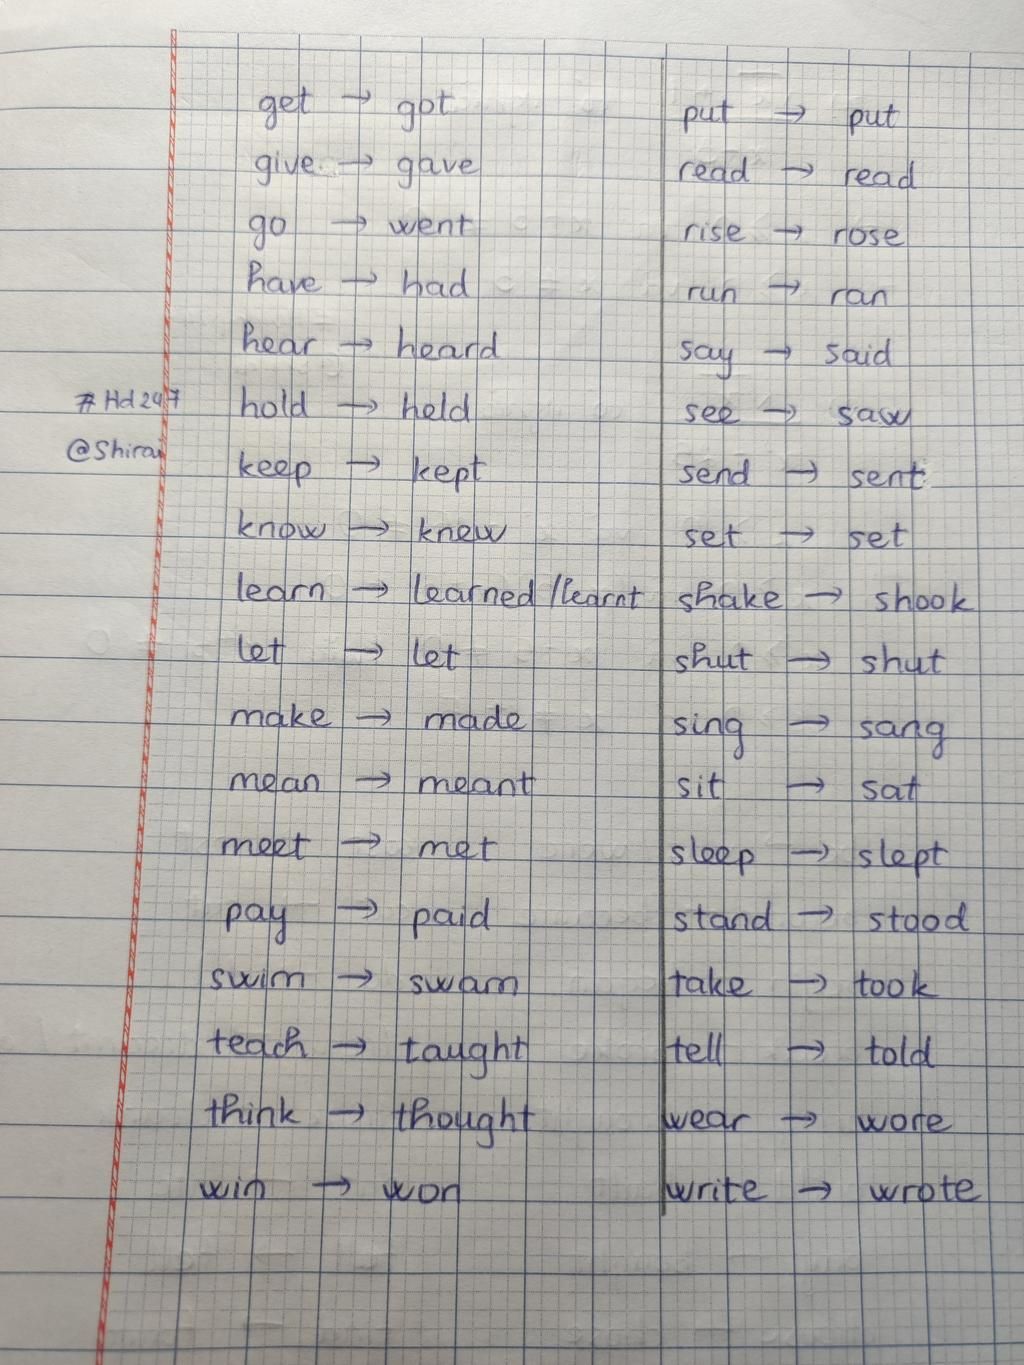 get → got
give → gave
go → went
have → had
hear → heard
hold → held
keep → kept
know → knew
learn → learned /learnt
let → let
make → made
mean → meant
meet → met
pay → paid
swim → swam
teach → taught
think → thought
win → won
put → put
read → read
rise → rose
run → ran
say → said
see → saw
send → sent
set → set
shake → shook
shut → shut
sing → sang
sit → sat
sleep → slept
stand → stood
take → took
tell → told
wear → wore
write → wrote
#Hd247
@Shirai